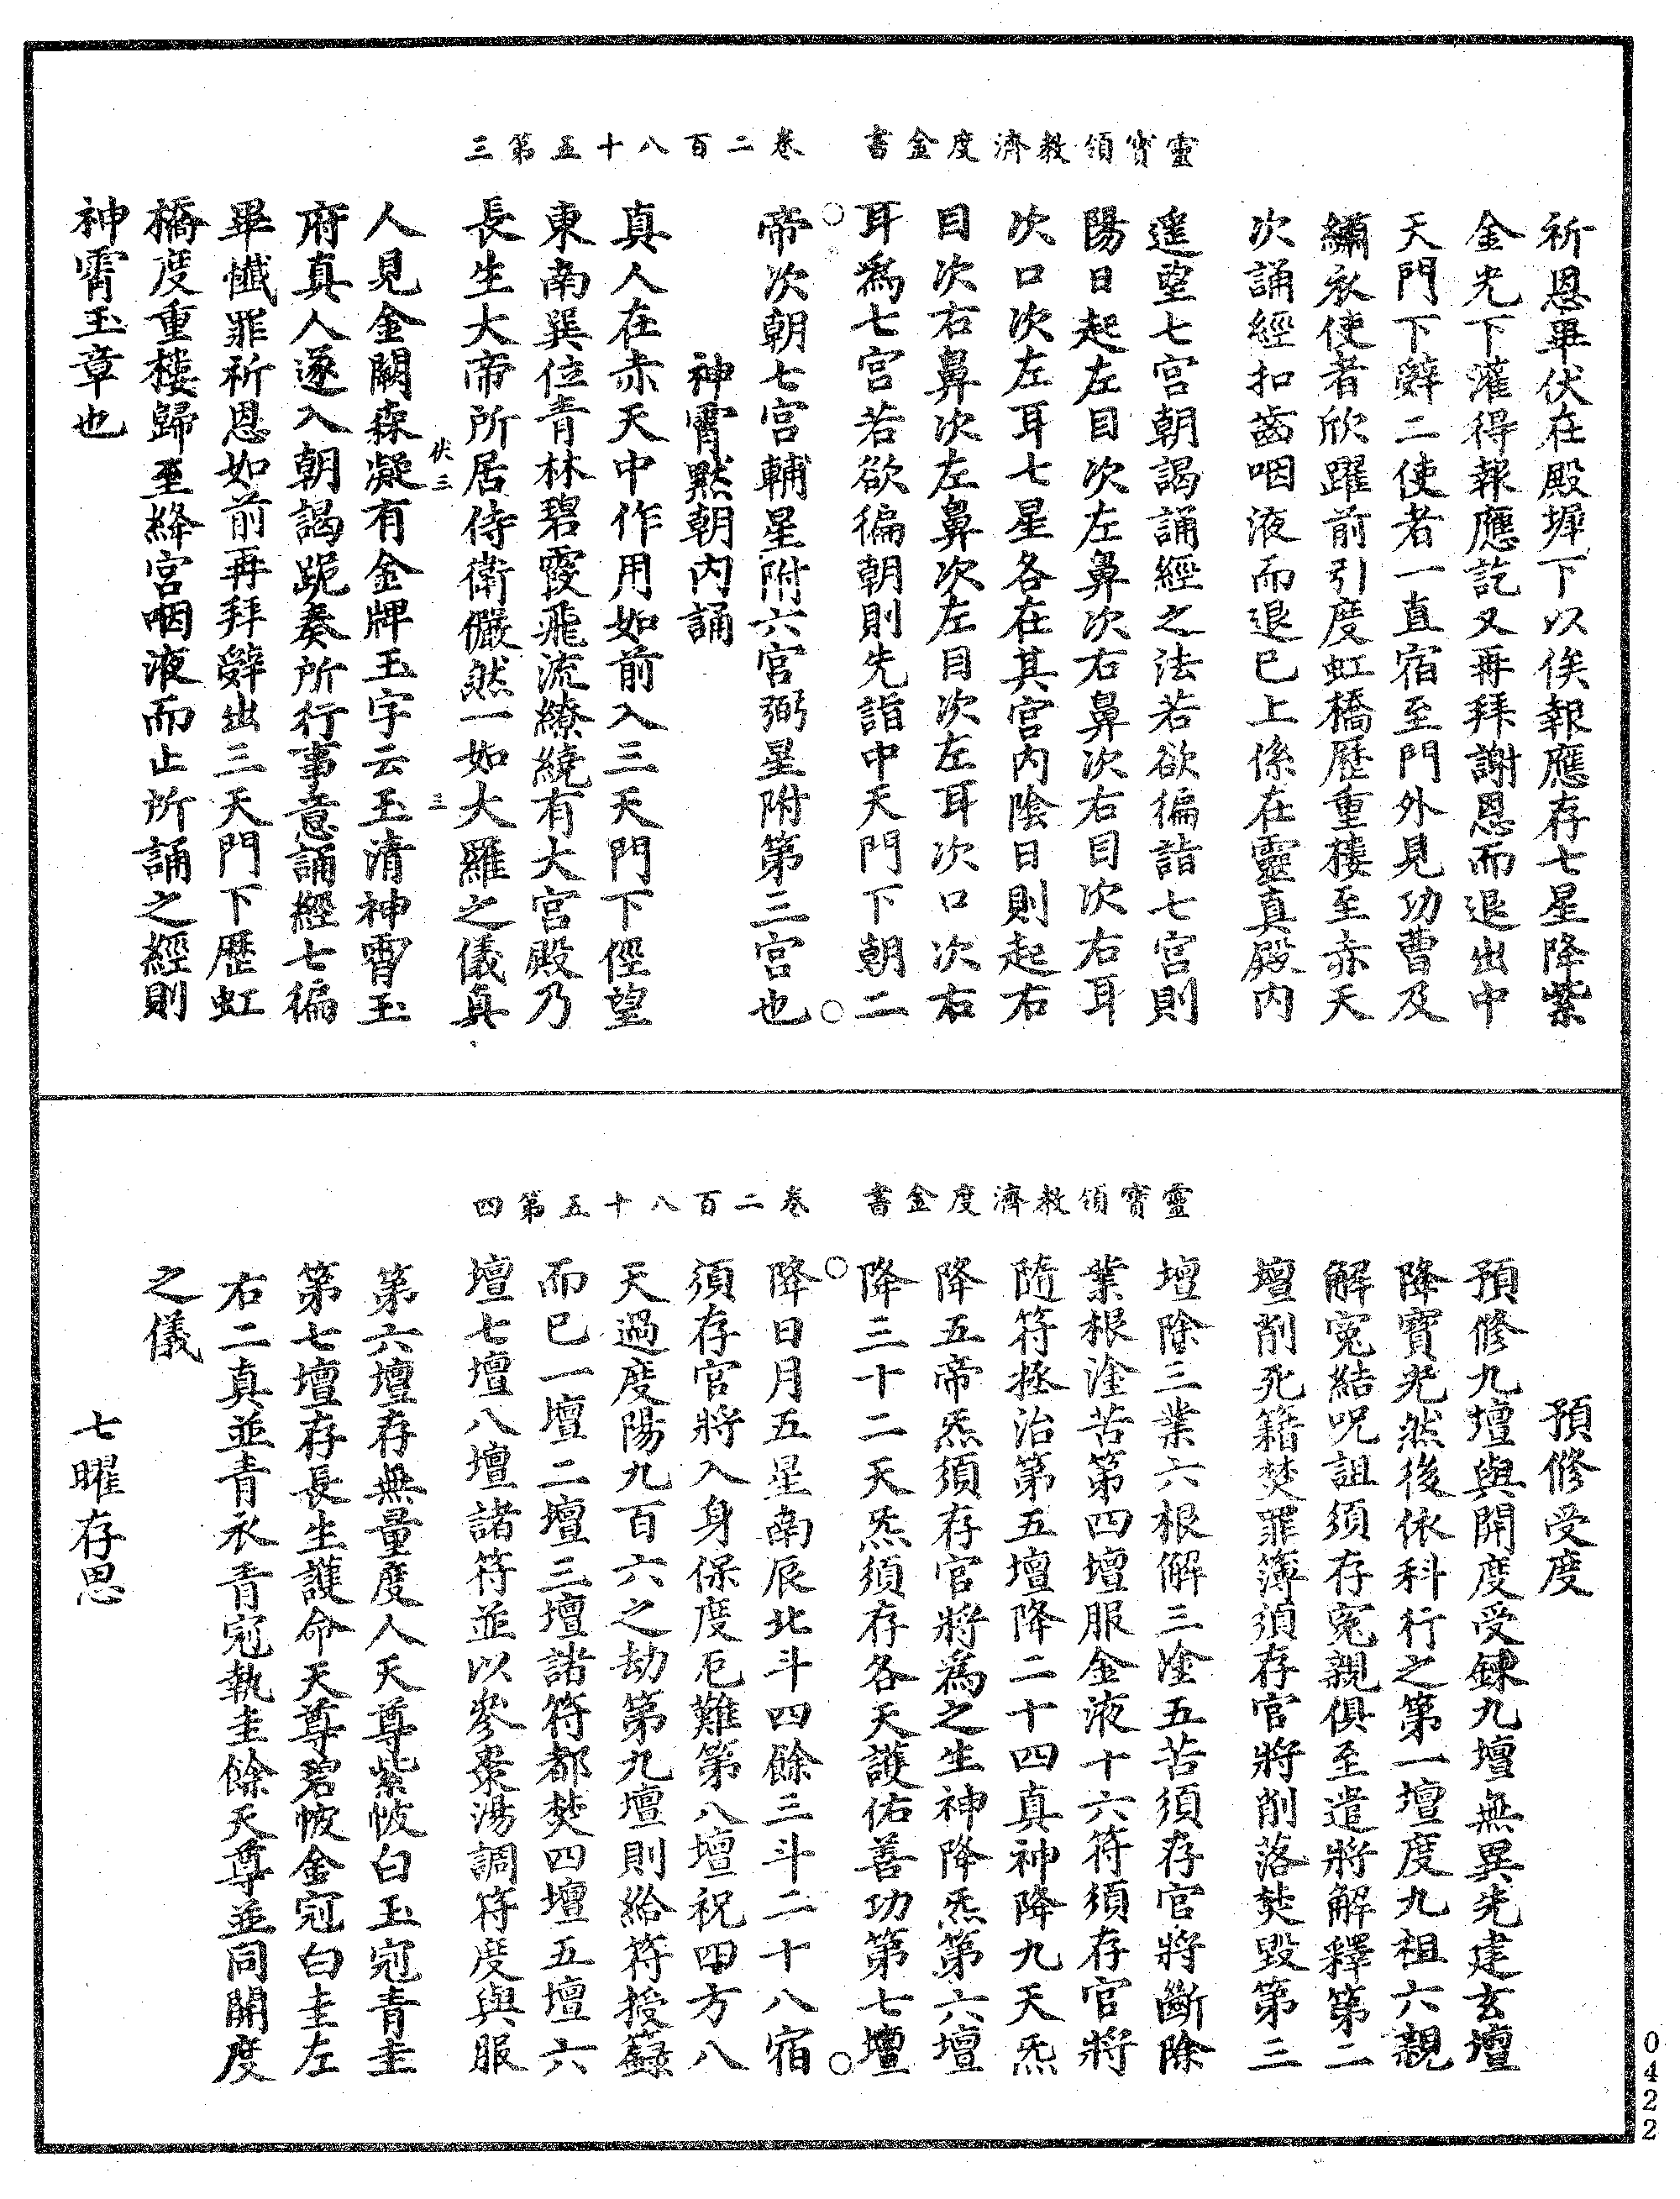 靈寶領教濟度金書　卷二百八十五第三
祈恩畢伏在殿墀下以俟報應存七星降紫
金光下灌得報應訖又再拜謝恩而退出中
天門下辭二使者一直宿至門外見功曹及
繡衣使者欣躍前引度虹橋歷重樓至赤天
次誦經扣齒咽液而退已上係在靈真殿內
遥望七宮朝謁誦經之法若欲徧詣七宮則
陽日起左目次左鼻次右鼻次右目次右耳
次口次左耳七星各在其宮內陰日則起右
目次右鼻次左鼻次左目次左耳次口次右
耳為七宮若欲徧朝則先詣中天門下朝二
帝次朝七宮輔星附六宮弼星附第三宮也
神霄默朝內誦
真人在赤天中作用如前入三天門下徑望
東南巽位青林碧霞飛流繚繞有大宮殿乃
長生大帝所居侍衛儼然一如大羅之儀真
伏三　三
人見金闕森凝有金牌玉字云玉清神霄玉
府真人遂入朝謁跪奏所行事意誦經七徧
畢懺罪祈恩如前再拜辭出三天門下歷虹
橋度重樓歸至絳宮咽液而止所誦之經則
神霄玉章也
靈寶領教濟度金書　卷二百八十五第四
預修受度
預修九壇與開度受鍊九壇無異先建玄壇
降寶光然後依科行之第一壇度九祖六親
解冤結呪詛須存冤親俱至遣將解釋第二
壇削死籍焚罪簿須存官將削落焚毀第三
壇除三業六根解三塗五苦須存官將斷除
業根塗苦第四壇服金液十六符須存官將
隨符拯治第五壇降二十四真神降九天炁
降五帝炁須存官將為之生神降炁第六壇
降三十二天炁須存各天護佑善功第七壇
降日月五星南辰北斗四餘三斗二十八宿
須存官將入身保度厄難第八壇祝四方八
天過度陽九百六之劫第九壇則給符授籙
而已一壇二壇三壇諸符都焚四壇五壇六
壇七壇八壇諸符並以參棗湯調符度與服
第六壇存無量度人天尊紫帔白玉冠青圭
第七壇存長生護命天尊碧帔金冠白圭左
右二真並青衣青冠執圭餘天尊並同開度
之儀
七曜存思
0422